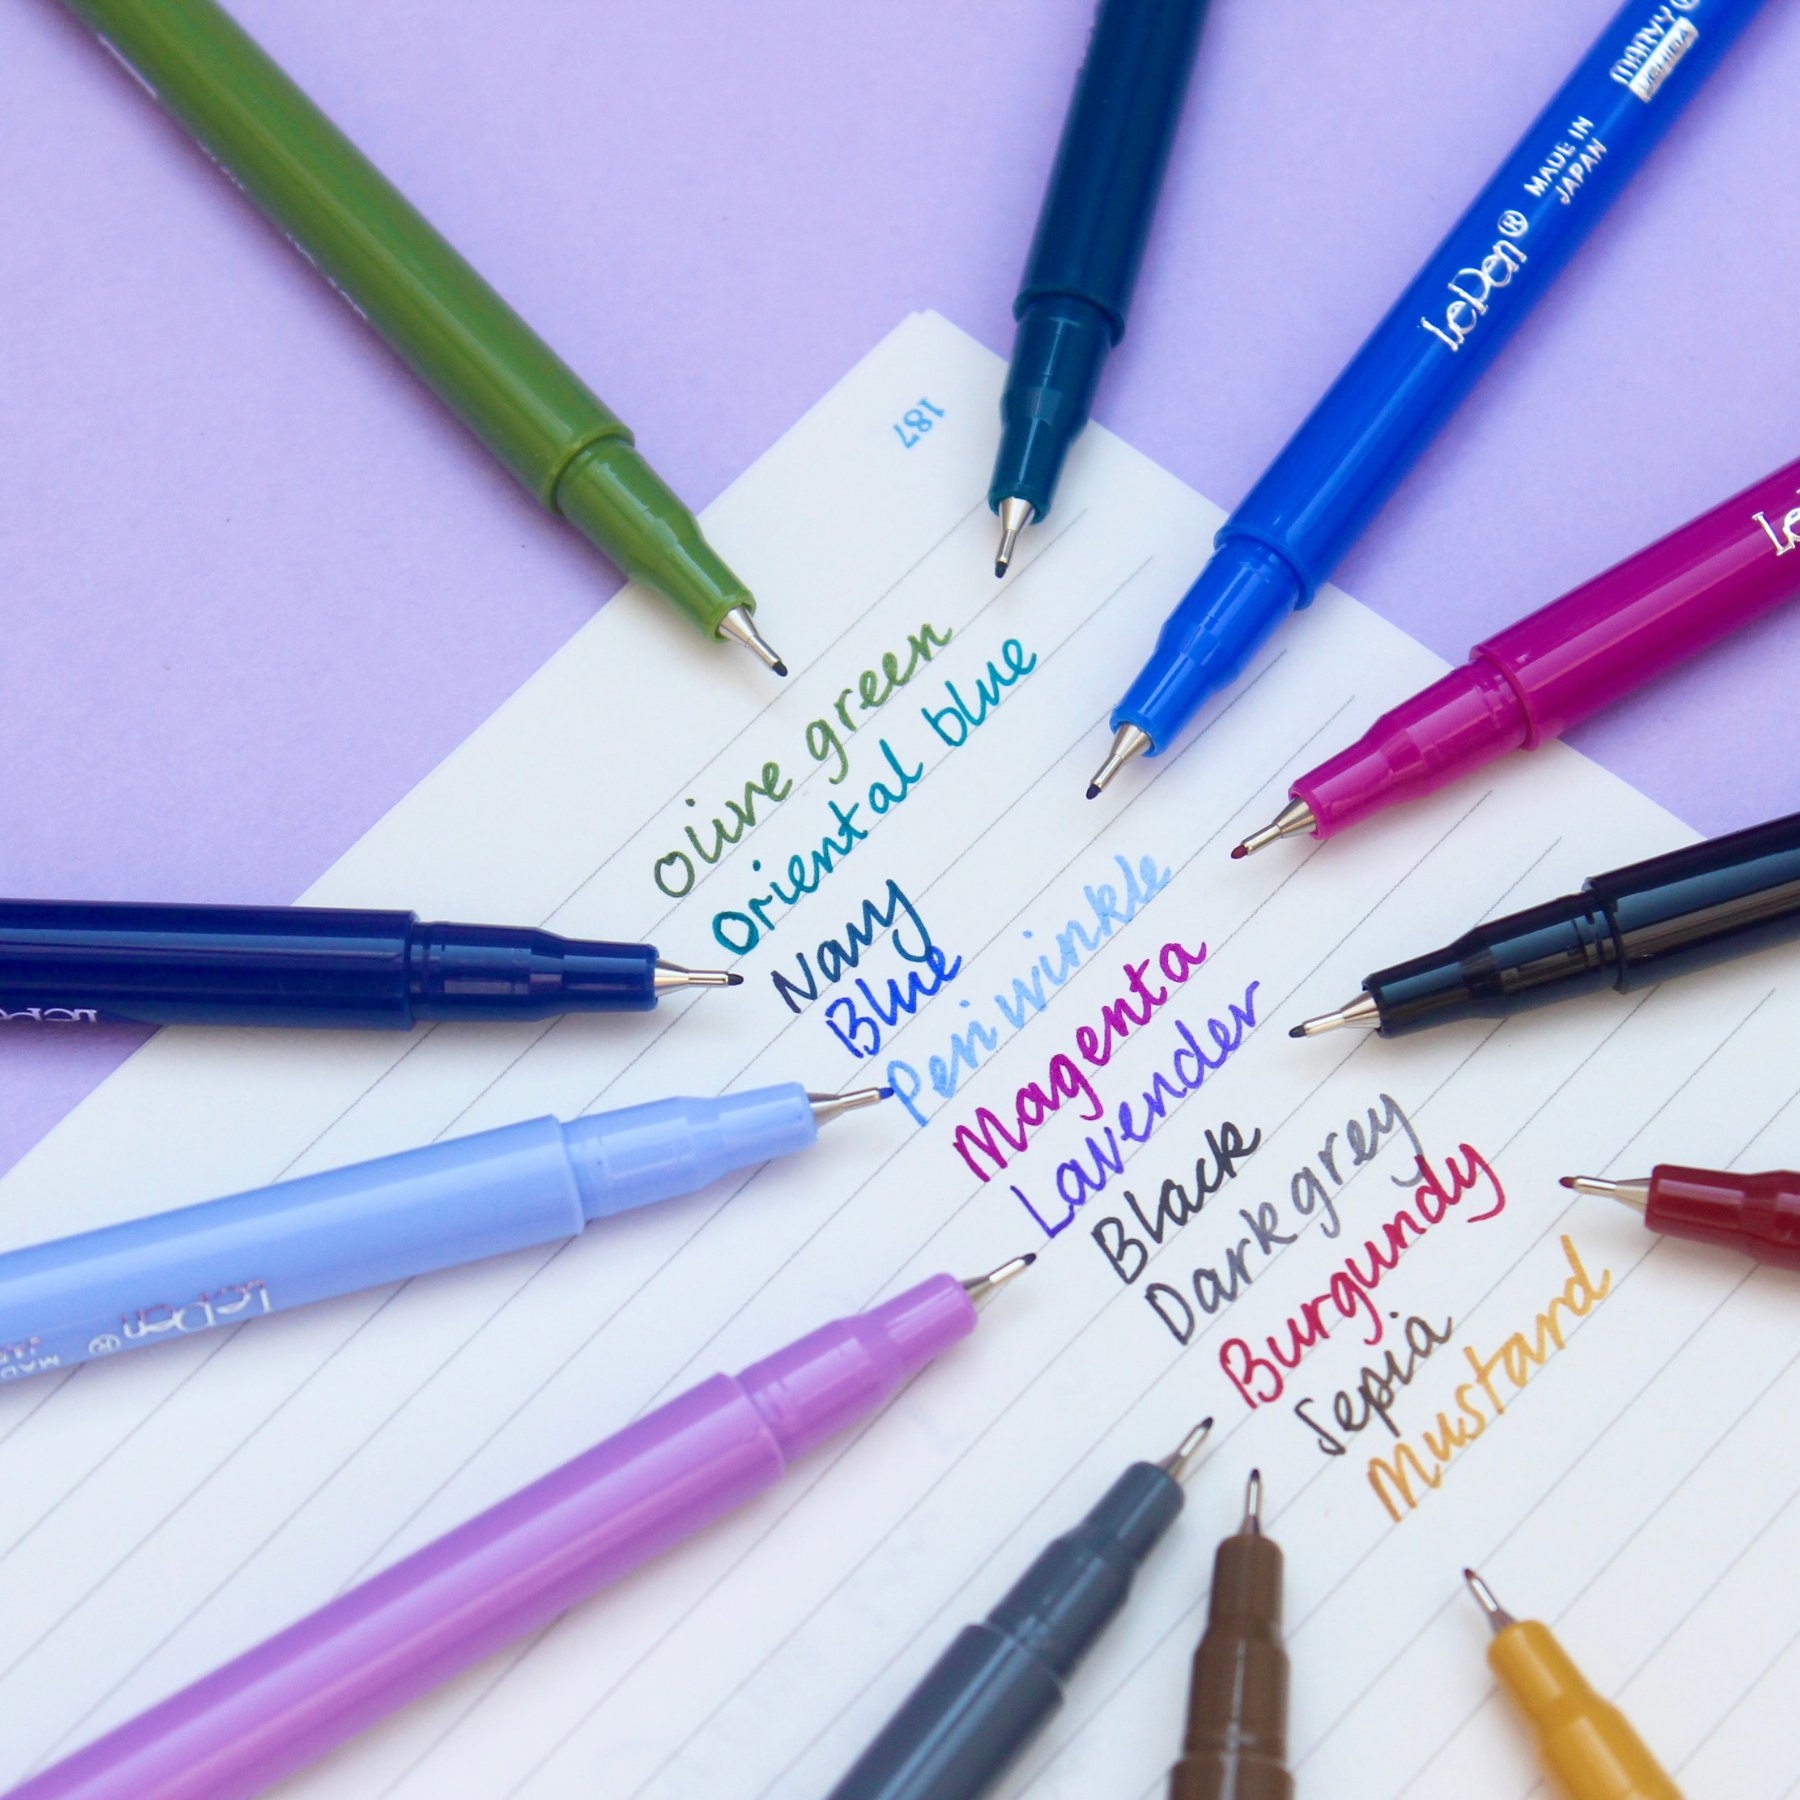 187
Olive green
Oriental blue
Navy
Blue
Periwinkle
Magenta
Lavender
Black
Dark grey
Burgundy
Sepia
Mustard
MARVY®
UCHIDA
MADE IN
JAPAN
LePen®
LePen®